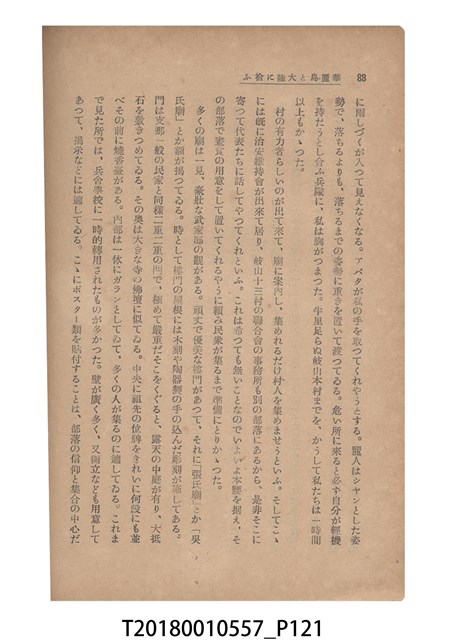 88 華麗島と大陸に拾ふ
に雨しづくが入つて見えなくなる。アバタが私の手を取つてくれやうとする。麗人はシヤンとした姿
勢で、落ちるよりも、落ちるまでの姿勢に重きを置いて渡つてゐる。危い所に來ると必ず自分が輕機
を持たうとし合ふ兵隊に、私は胸がつまつた。半里足らぬ岐山本村までを、かうして私たちは一時間
以上もかゝつた。
村の有力者らしいのが出て來て、廟に案内し、集めれるだけ村人を集めませうといふ。そしてこゝ
には既に治安維持會が出來て居り、岐山十三村の聯合會の事務所も別の部落にあるから、是非そこに
寄つて代表たちに話してやつてくれといふ。これは希つても無いことなのでいよいよ本腰を据え、そ
の部落で簺食の用意をして置いてくれるやうに頼み民衆が集るまで準備にとりかゝつた。
多くの廟は一見、豪壯な武家邸の觀がある。頑丈で優美な樓門があつて、それに「張氏廟」とか「吳
氏廟」とか額が揭つてゐる。時として樓門の屋根には木刻や陶器製の手の込んだ彫刻が施してある。
門は支那一般の民家と同樣一重二重の門で、極めて嚴重だそこをくぐると、露天の中庭が有り、大抵
石を敷きつめてゐる。その奧は大きな寺の佛壇に似てゐる。中央に祖先の位牌をきれいに何段にも並
べその前に燒香臺がある。内部は一体にガランとしてゐて、多くの人が集るのに適してゐる。これま
で見た所では、兵舍や學校に一時的轉用されたものが多かつた。壁が廣く多く、又衝立なども用意して
あつて、揭示などには適してゐる。こゝにポスター類を貼付することは、部落の信仰と集合の中心だ
T20180010557_P121